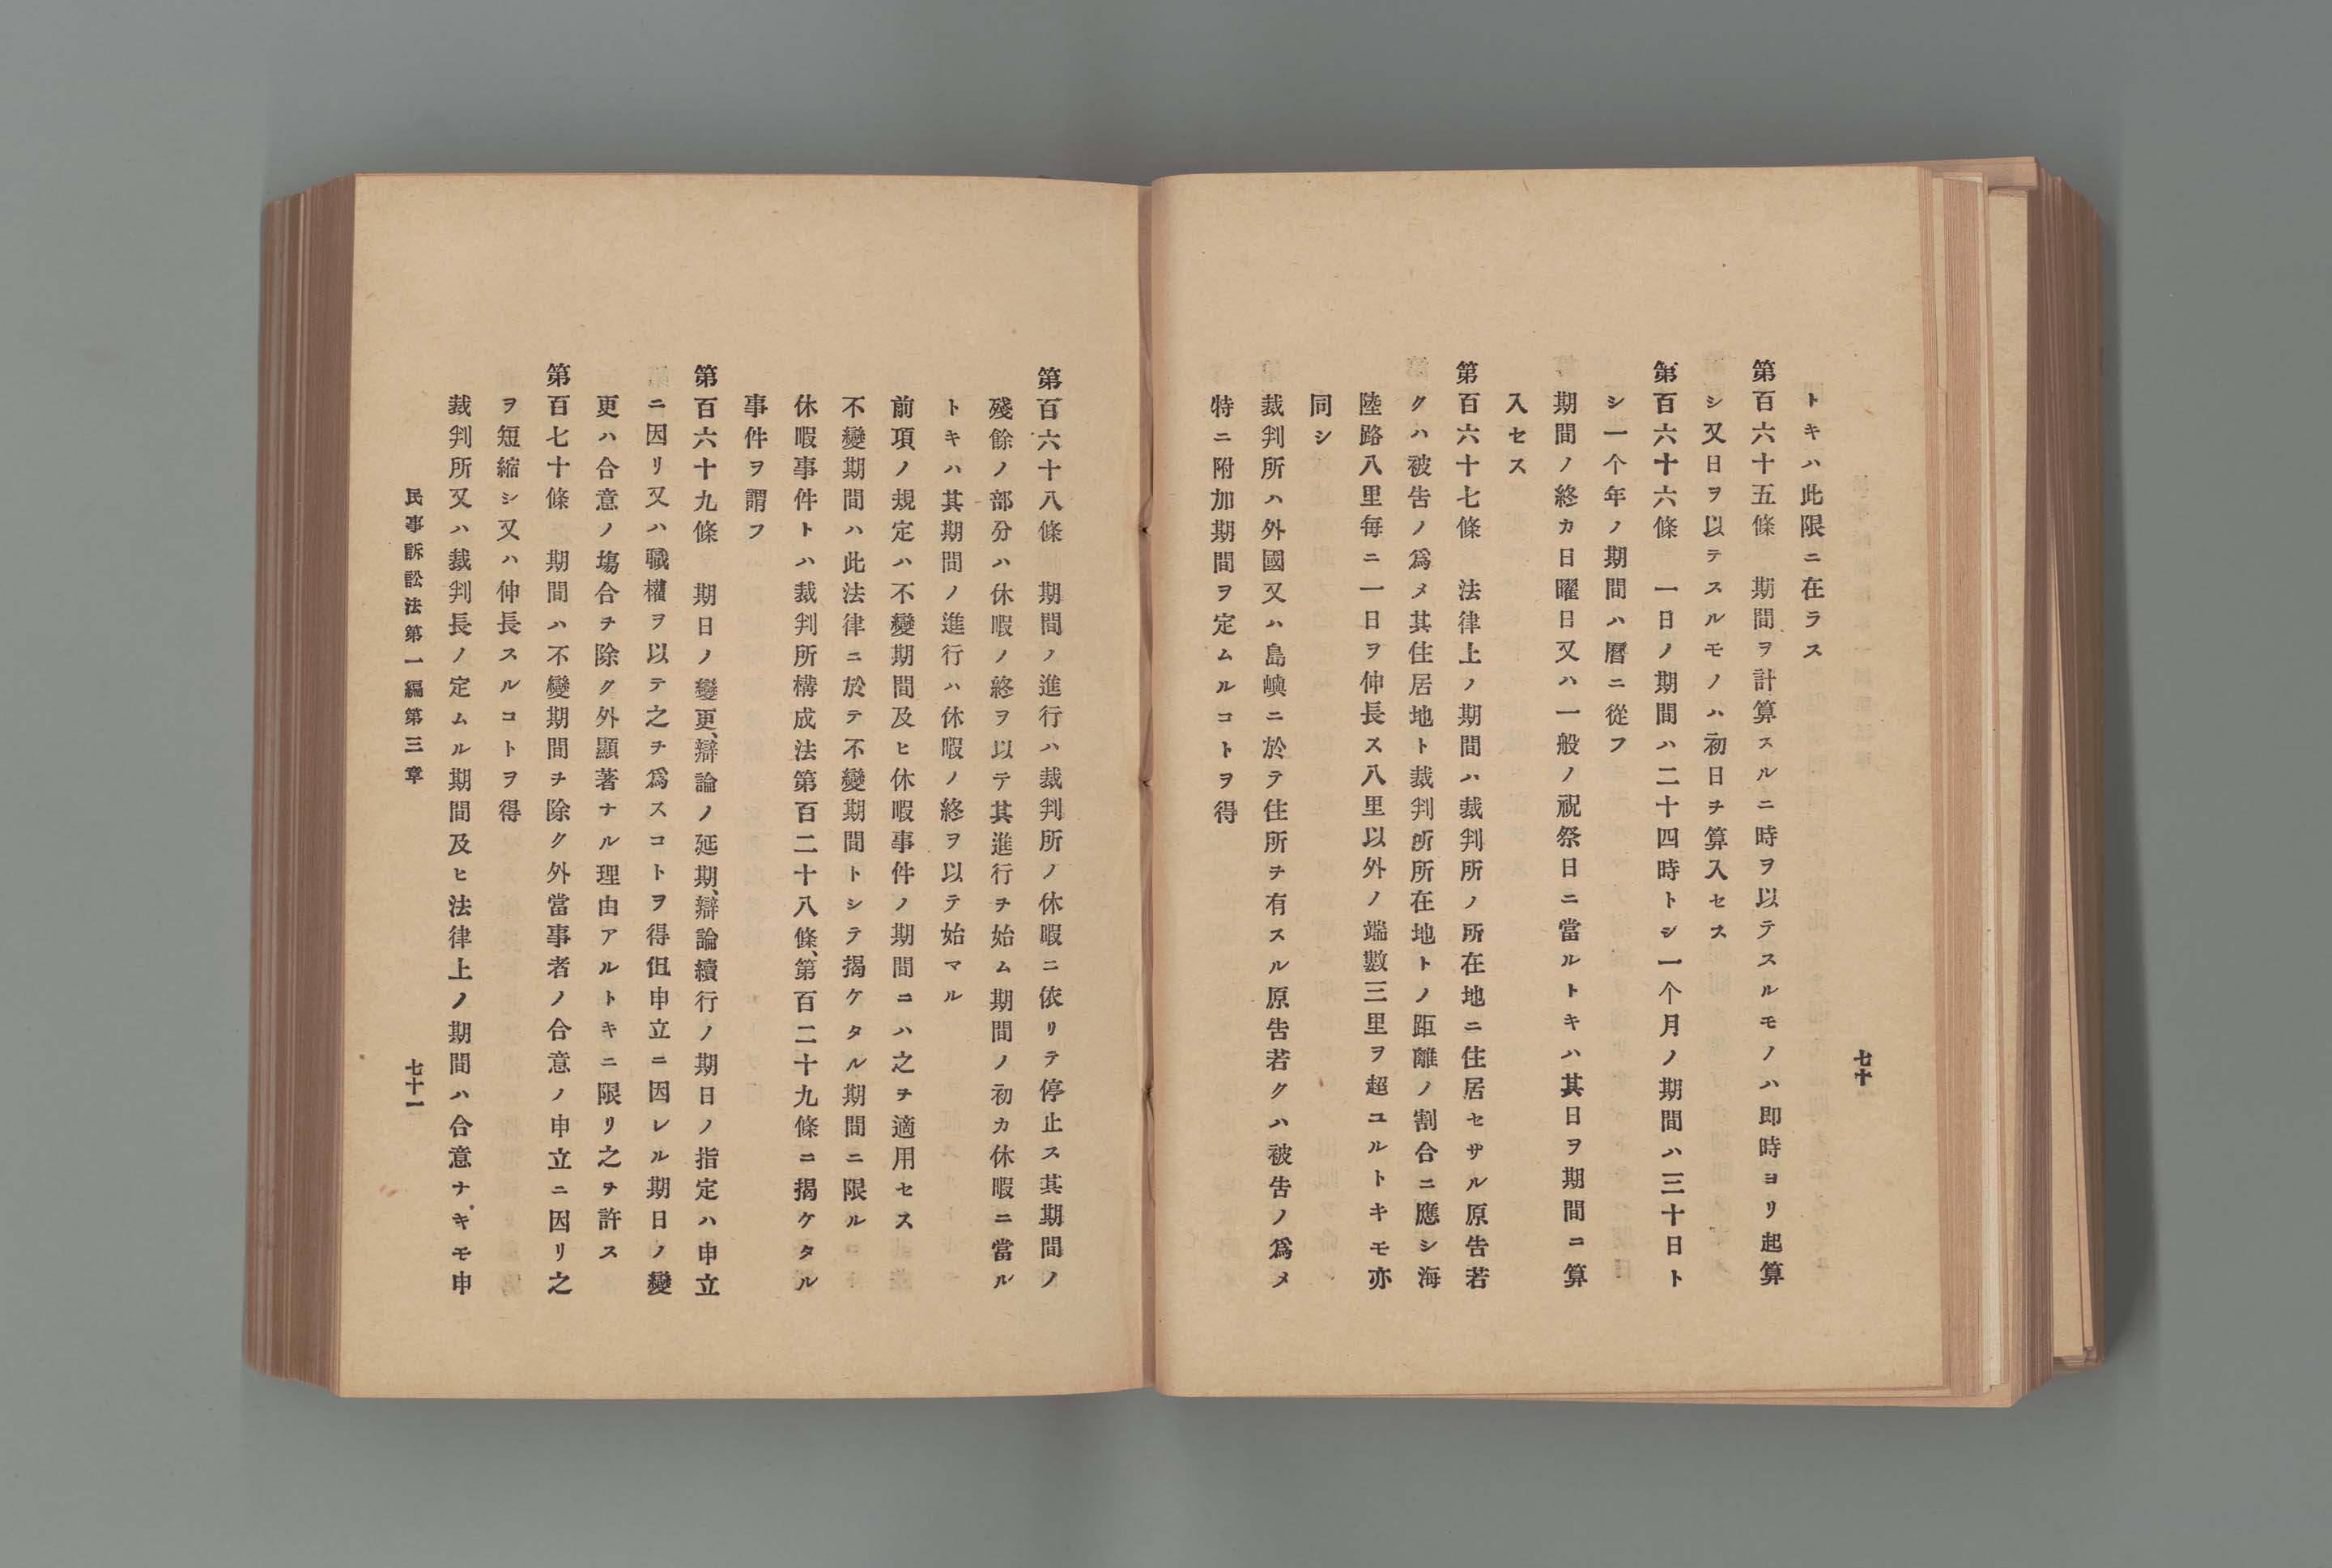 七十
トキハ此限ニ在ラス
第百六十五條　期間ヲ計算スルニ時ヲ以テスルモノハ卽時ヨリ起算
シ又日ヲ以テスルモノハ初日ヲ算入セス
第百六十六條　一日ノ期間ハ二十四時トシ一个月ノ期間ハ三十日ト
シ一个年ノ期間ハ曆ニ從フ
期間ノ終カ日曜日又ハ一般ノ祝祭日ニ當ルトキハ其日ヲ期間ニ算
入セス
第百六十七條　法律上ノ期間ハ裁判所ノ所在地ニ住居セサル原告若
クハ被告ノ爲メ其住居地ト裁判所所在地トノ距離ノ割合ニ應シ海
陸路八里每ニ一日ヲ伸長ス八里以外ノ端數三里ヲ超ユルトキモ亦
同シ
裁判所ハ外國又ハ島嶼ニ於テ住所ヲ有スル原告若クハ被告ノ爲メ
特ニ附加期間ヲ定ムルコトヲ得
第百六十八條　期間ノ進行ハ裁判所ノ休暇ニ依リテ停止ス其期間ノ
殘餘ノ部分ハ休暇ノ終ヲ以テ其進行ヲ始ム期間ノ初カ休暇ニ當ル
トキハ其期間ノ進行ハ休暇ノ終ヲ以テ始マル
前項ノ規定ハ不變期間及ヒ休暇事件ノ期間ニハ之ヲ適用セス
不變期間ハ此法律ニ於テ不變期間トシテ揭ケタル期間ニ限ル
休暇事件トハ裁判所構成法第百二十八條、第百二十九條ニ揭ケタル
事件ヲ謂フ
第百六十九條　期日ノ變更、辯論ノ延期、辯論續行ノ期日ノ指定ハ申立
ニ因リ又ハ職權ヲ以テ之ヲ爲スコトヲ得但申立ニ因レル期日ノ變
更ハ合意ノ塲合ヲ除ク外顯著ナル理由アルトキニ限リ之ヲ許ス
第百七十條　期間ハ不變期間ヲ除ク外當事者ノ合意ノ申立ニ因リ之
ヲ短縮シ又ハ伸長スルコトヲ得
裁判所又ハ裁判長ノ定ムル期間及ヒ法律上ノ期間ハ合意ナキモ申
民事訴訟法第一編第三章
七十一